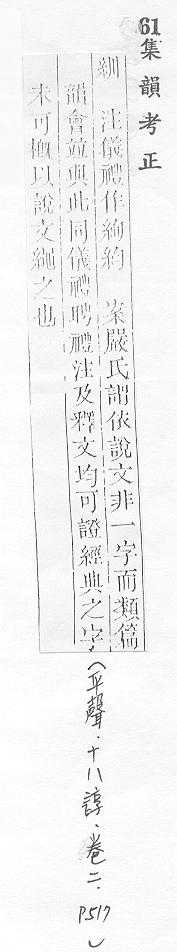 61集韻考正
紃 注儀禮作絢約 案嚴氏謂依說文非一字而類篇
韻會竝與此同儀禮聘禮注及釋文均可證經典之字
未可槪以說文繩之也
(平聲.十八諄.卷二.P517)